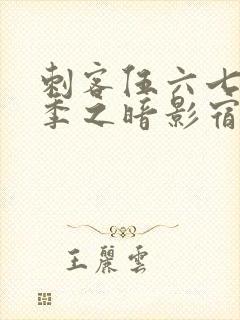 刺客伍六七
季之暗影宿
王麗雲